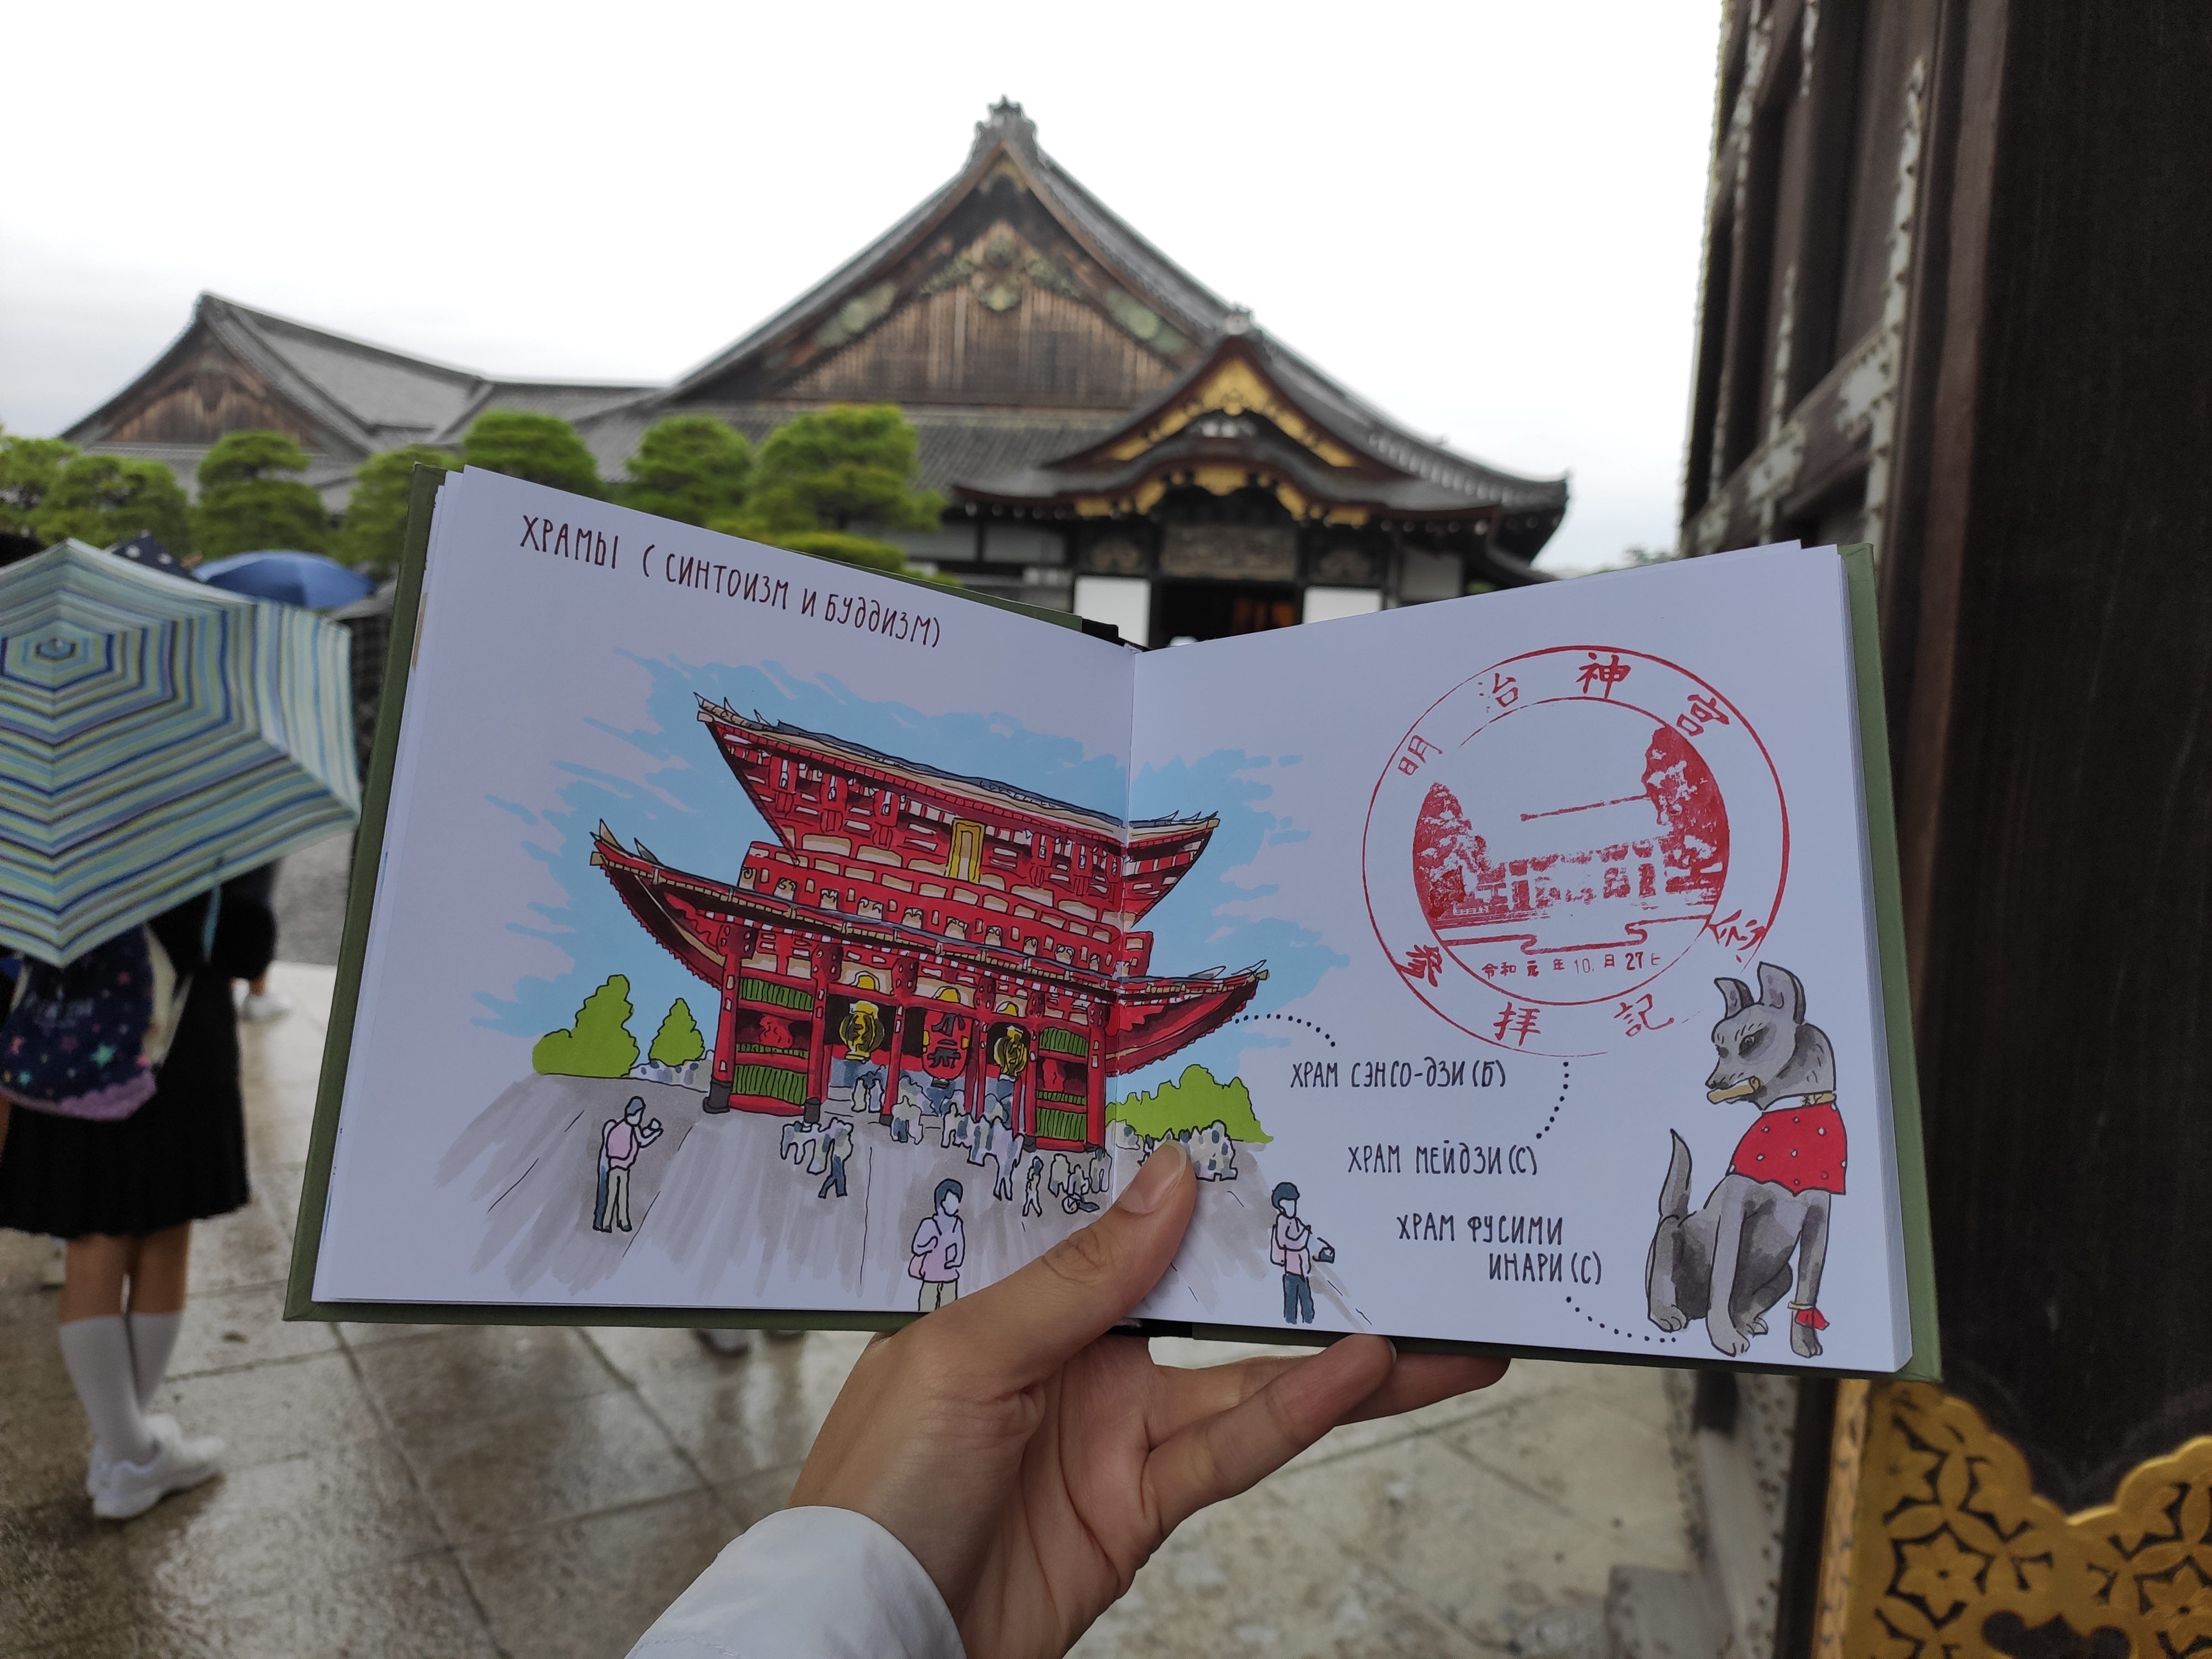 ХРАМЫ (СИНТОИЗМ И БУДДИЗМ)
明治神宮
参拝記念
令和元年10月27日
ХРАМ СЭНСО-ДЗИ (Б)
ХРАМ МЕЙДЗИ (С)
ХРАМ ФУСИМИ
ИНАРИ (С)